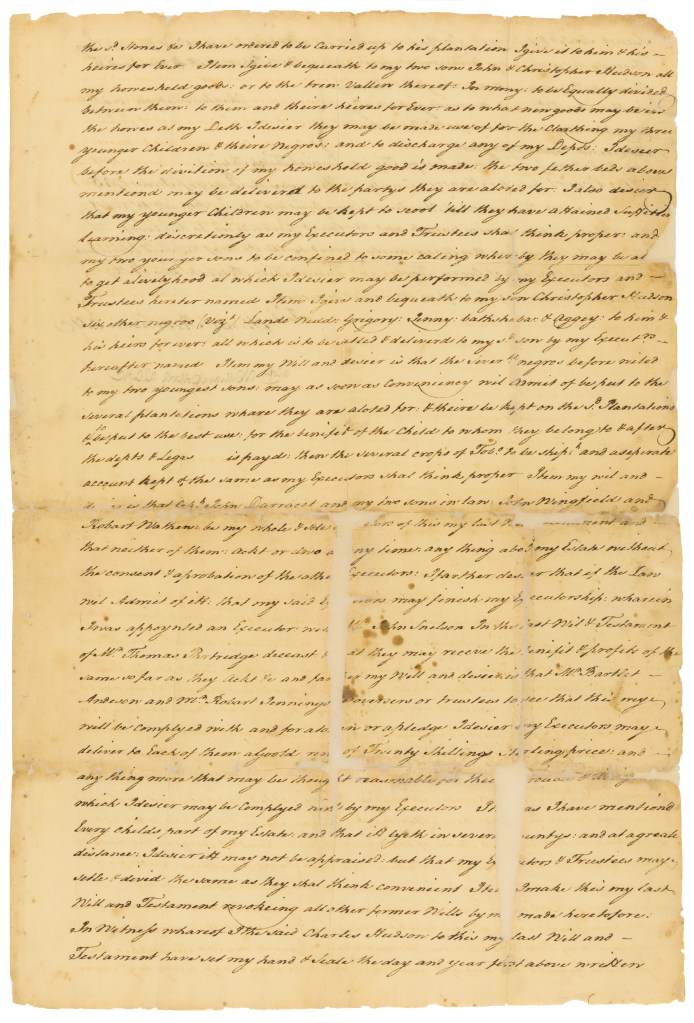 the Sd. Stones &c I have ordered to be Carried up to his plantation I give it to him & his
heires for Ever Item I give & bequeath to my two sons John & Christopher Hudson all
my houeshold goods: or to the treu Vallen thereof: In mony: to be Equally divided
between them: to them and theire heires for Ever: as to what new goods may be in
the houes as my Deth I desier they may be made use of for the Cloathing my three
younger Children & theire Negros: and to discharge any of my Depts: I desier
before the divition of my houeshold good is made: the two fether beds above
mentiond may be deliverd to the partys they are aloted for: I also desier
that my younger Children may be kept to scool till they have attained Suffitien
learning: discretionly as my Executors and Trustees shal think proper: and
my two younger sons to be confined to some caling wher by they may be
to get alivelyhood al which I desier may be performed by my Executors and
Trustees herefter named Item I give and bequeath to my Son Christopher Hudson
Six other negros (Vizt) Lande Nedd: Grigory: Janny: bathsheba: & Aggey: to him &
his heirs for ever: all which is to be & deliverd to my Sd. son by my Executrs.
hereafter named Item my Will and desier is that the negros before
to my two youngest sons: may as soon as Conveniency wil Admet of be put to the
Several plantations whare they are aloted for: & theire be kept on the Sd. Plantations
& to be put to the best use: for the benifit of the Child to whom they belong: & after
the depts & Legas is payd: then the several crops of Tobo. to be shipt. and a seperate
account kept of the same as my Executors shal think proper Item my wil and
is that Capt. John Darracet and my two sons in law: John Wingfield and
Robert Wathen: be my whole & of this my last and
that neither of them: Ackt or dwo any time: any thing abo my Estate without
the consent & aprobation of the othe Executors: I farther desier that if the Law
wil Admict of itt: that my said may finish my Executorship: wherein
I was appoynted an Executor: John Snelson In the Last Wil & Testament
of Mr. Thomas Partridge deceast at they may receive the Benifit & profits of the
same so far as they Ackt & and my Will and desier: is that Mr. Bartlet
Anderson and Mr. Robert Jennings Overseers or trustees to see that this my
will be complyed with and for a or a pledge I desier my Executors may
deliver to Each of them a Goold ring of Twenty Shillings Sterling price: and
any thing more that may be thought reasonable for their
which I desier may be Complyed with by my Executors Item as I have mentiond
Every Childs part of my Estate: and that itt lyeth in severl Countys: and at agreate
distance: I desier itt may not be appraised: but that my Executors & Trustees may
setle & devid the same as they shal think convenient Item I make this my last
Will and Testament revokeing all other former Wills by me made heretofore:
In Witness whareof I the said Charles Hudson to this my last Will and
Testament have set my hand & Seale the day and year first above written